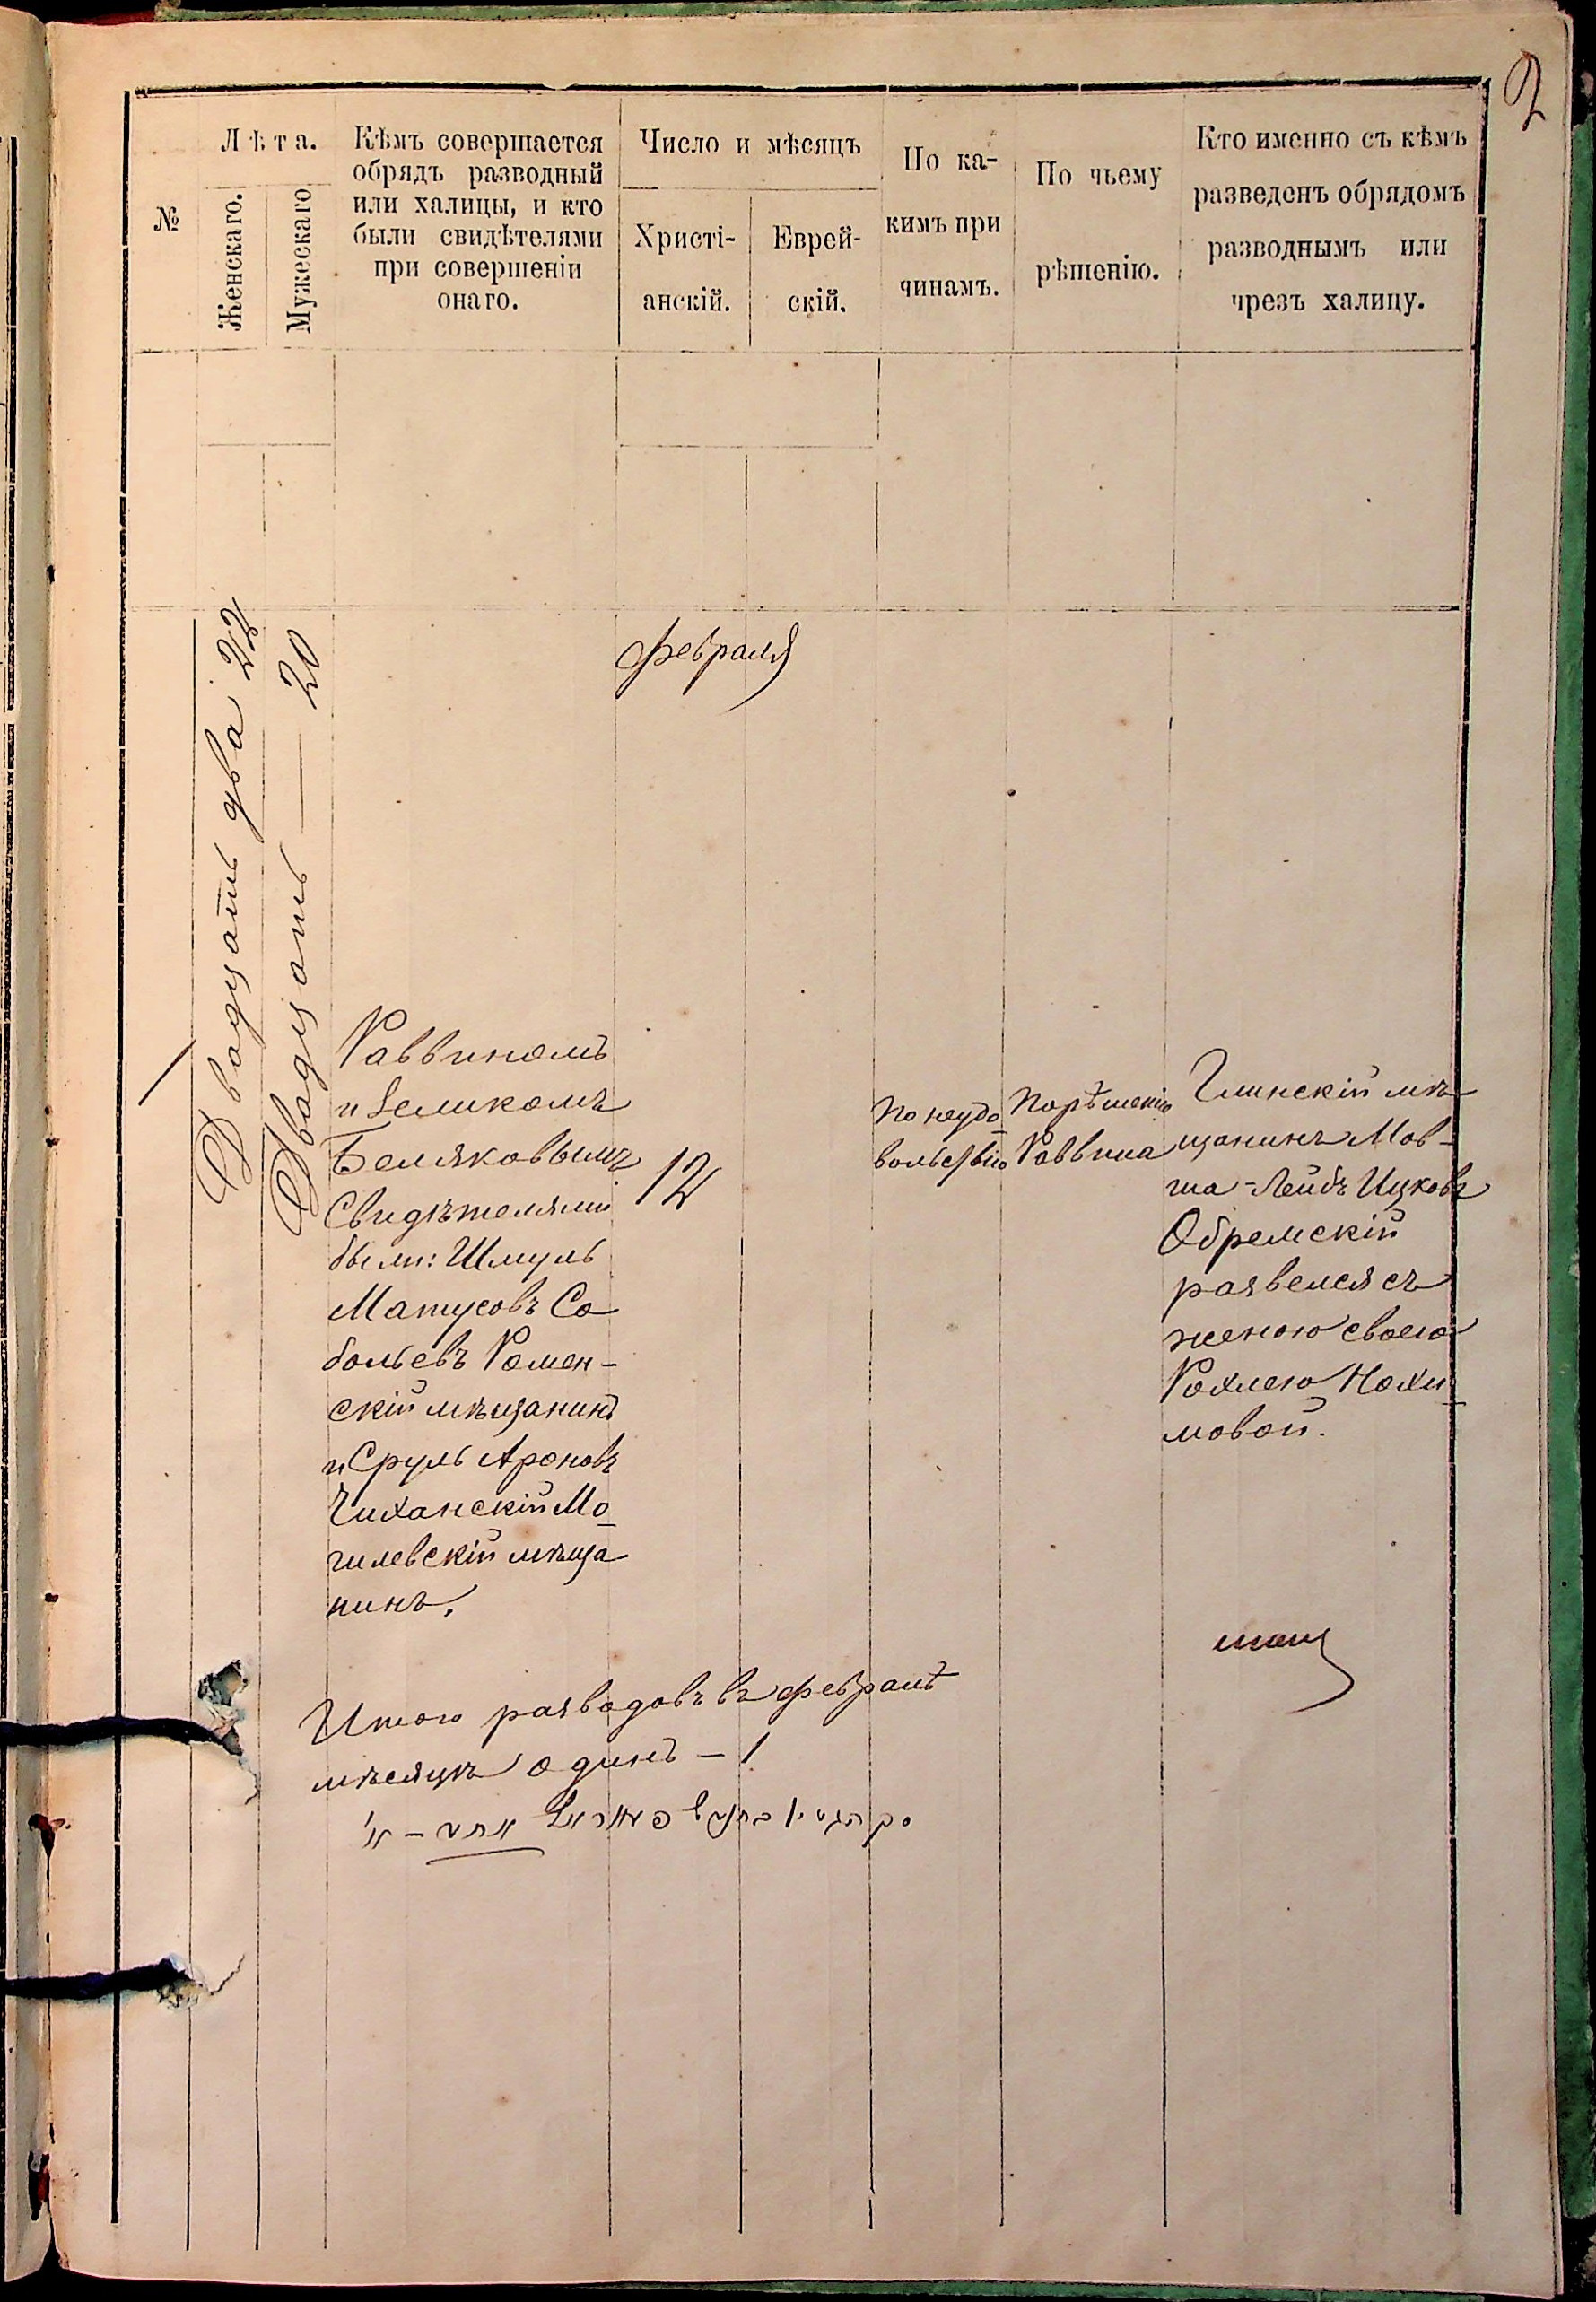 2
№
Лѣта.
Женскаго.
Мужескаго
Кѣмъ совершается
обрядъ разводный
или халицы, и кто
были свидѣтелями
при совершеніи
онаго.
Число и мѣсяцъ
Христі-
анскій.
Еврей-
скій.
По ка-
кимъ при
чинамъ.
По чьему
рѣшенію.
Кто именно съ кѣмъ
разведенъ обрядомъ
разводнымъ или
чрезъ халицу.
февраля
1
Двадцать два 22
Двадцать — 20
Раввиномъ
Беляковымъ
Свидѣтелями
были: Шмуль
Матусовъ Со
больевъ Ромен-
скій мѣщанинъ
и Сруль Ароновъ
Чиханскій Мо
гилевскій мѣща
нинъ.
12
По неудо
вольствію
По рѣшенію
Раввина
Глинскій мѣ
щанинъ Мов-
ша-Лейбъ Ицковъ
Обремскій
развелся съ
женою своею
Рохлею Нохи
мовой.
Итого разводовъ въ февралѣ
мѣсяцѣ одинъ – 1